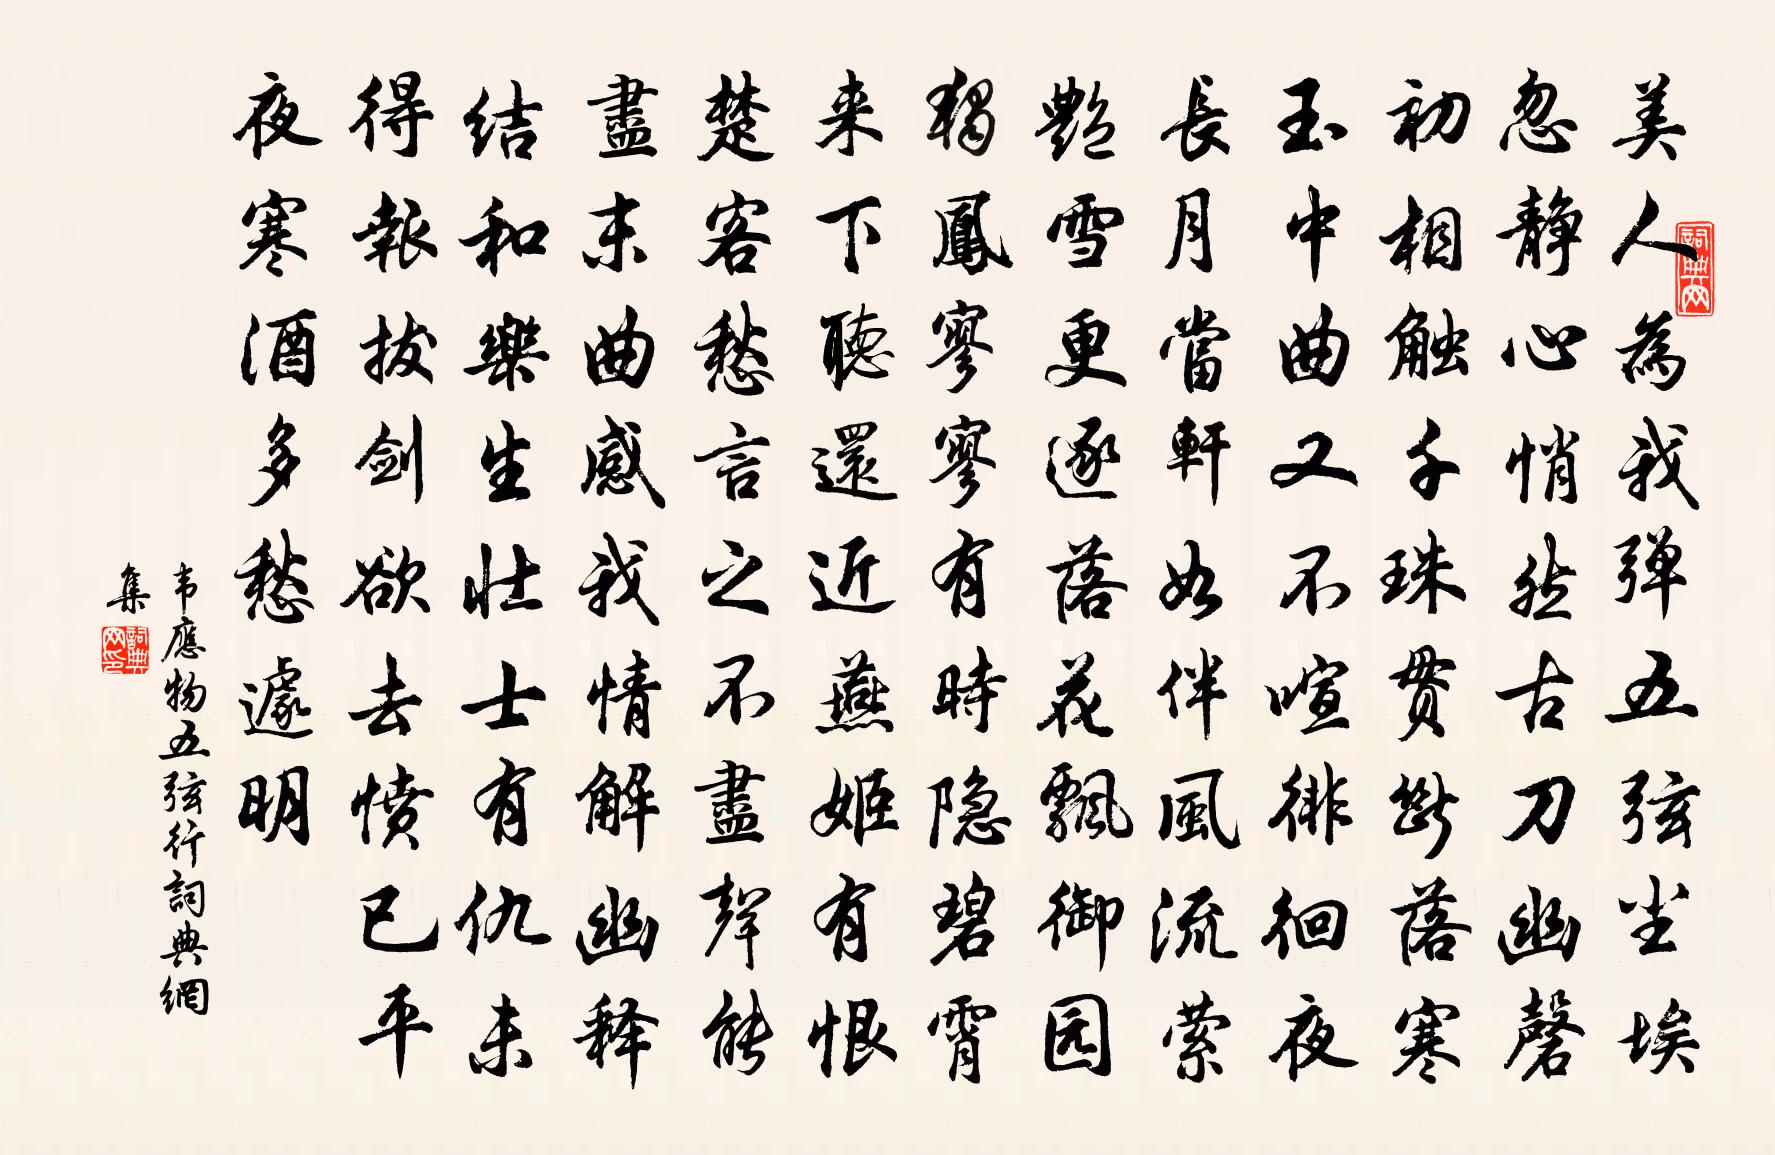 詞典网
美人為我弹五弦尘埃
忽静心悄然古刀幽磬
初相触千珠貫斷落寒
玉中曲又不喧徘徊夜
長月當軒如伴風流萦
艷雪更逐落花飄御园
獨鳳寥寥有時隐碧霄
来下聽還近燕姬有恨
楚客愁言之不盡聲能
盡末曲感我情解幽释
结和樂生壮士有仇未
得報拔剑欲去愤已平
夜寒酒多愁遽明
韦應物五弦行詞典網
集
詞典网印